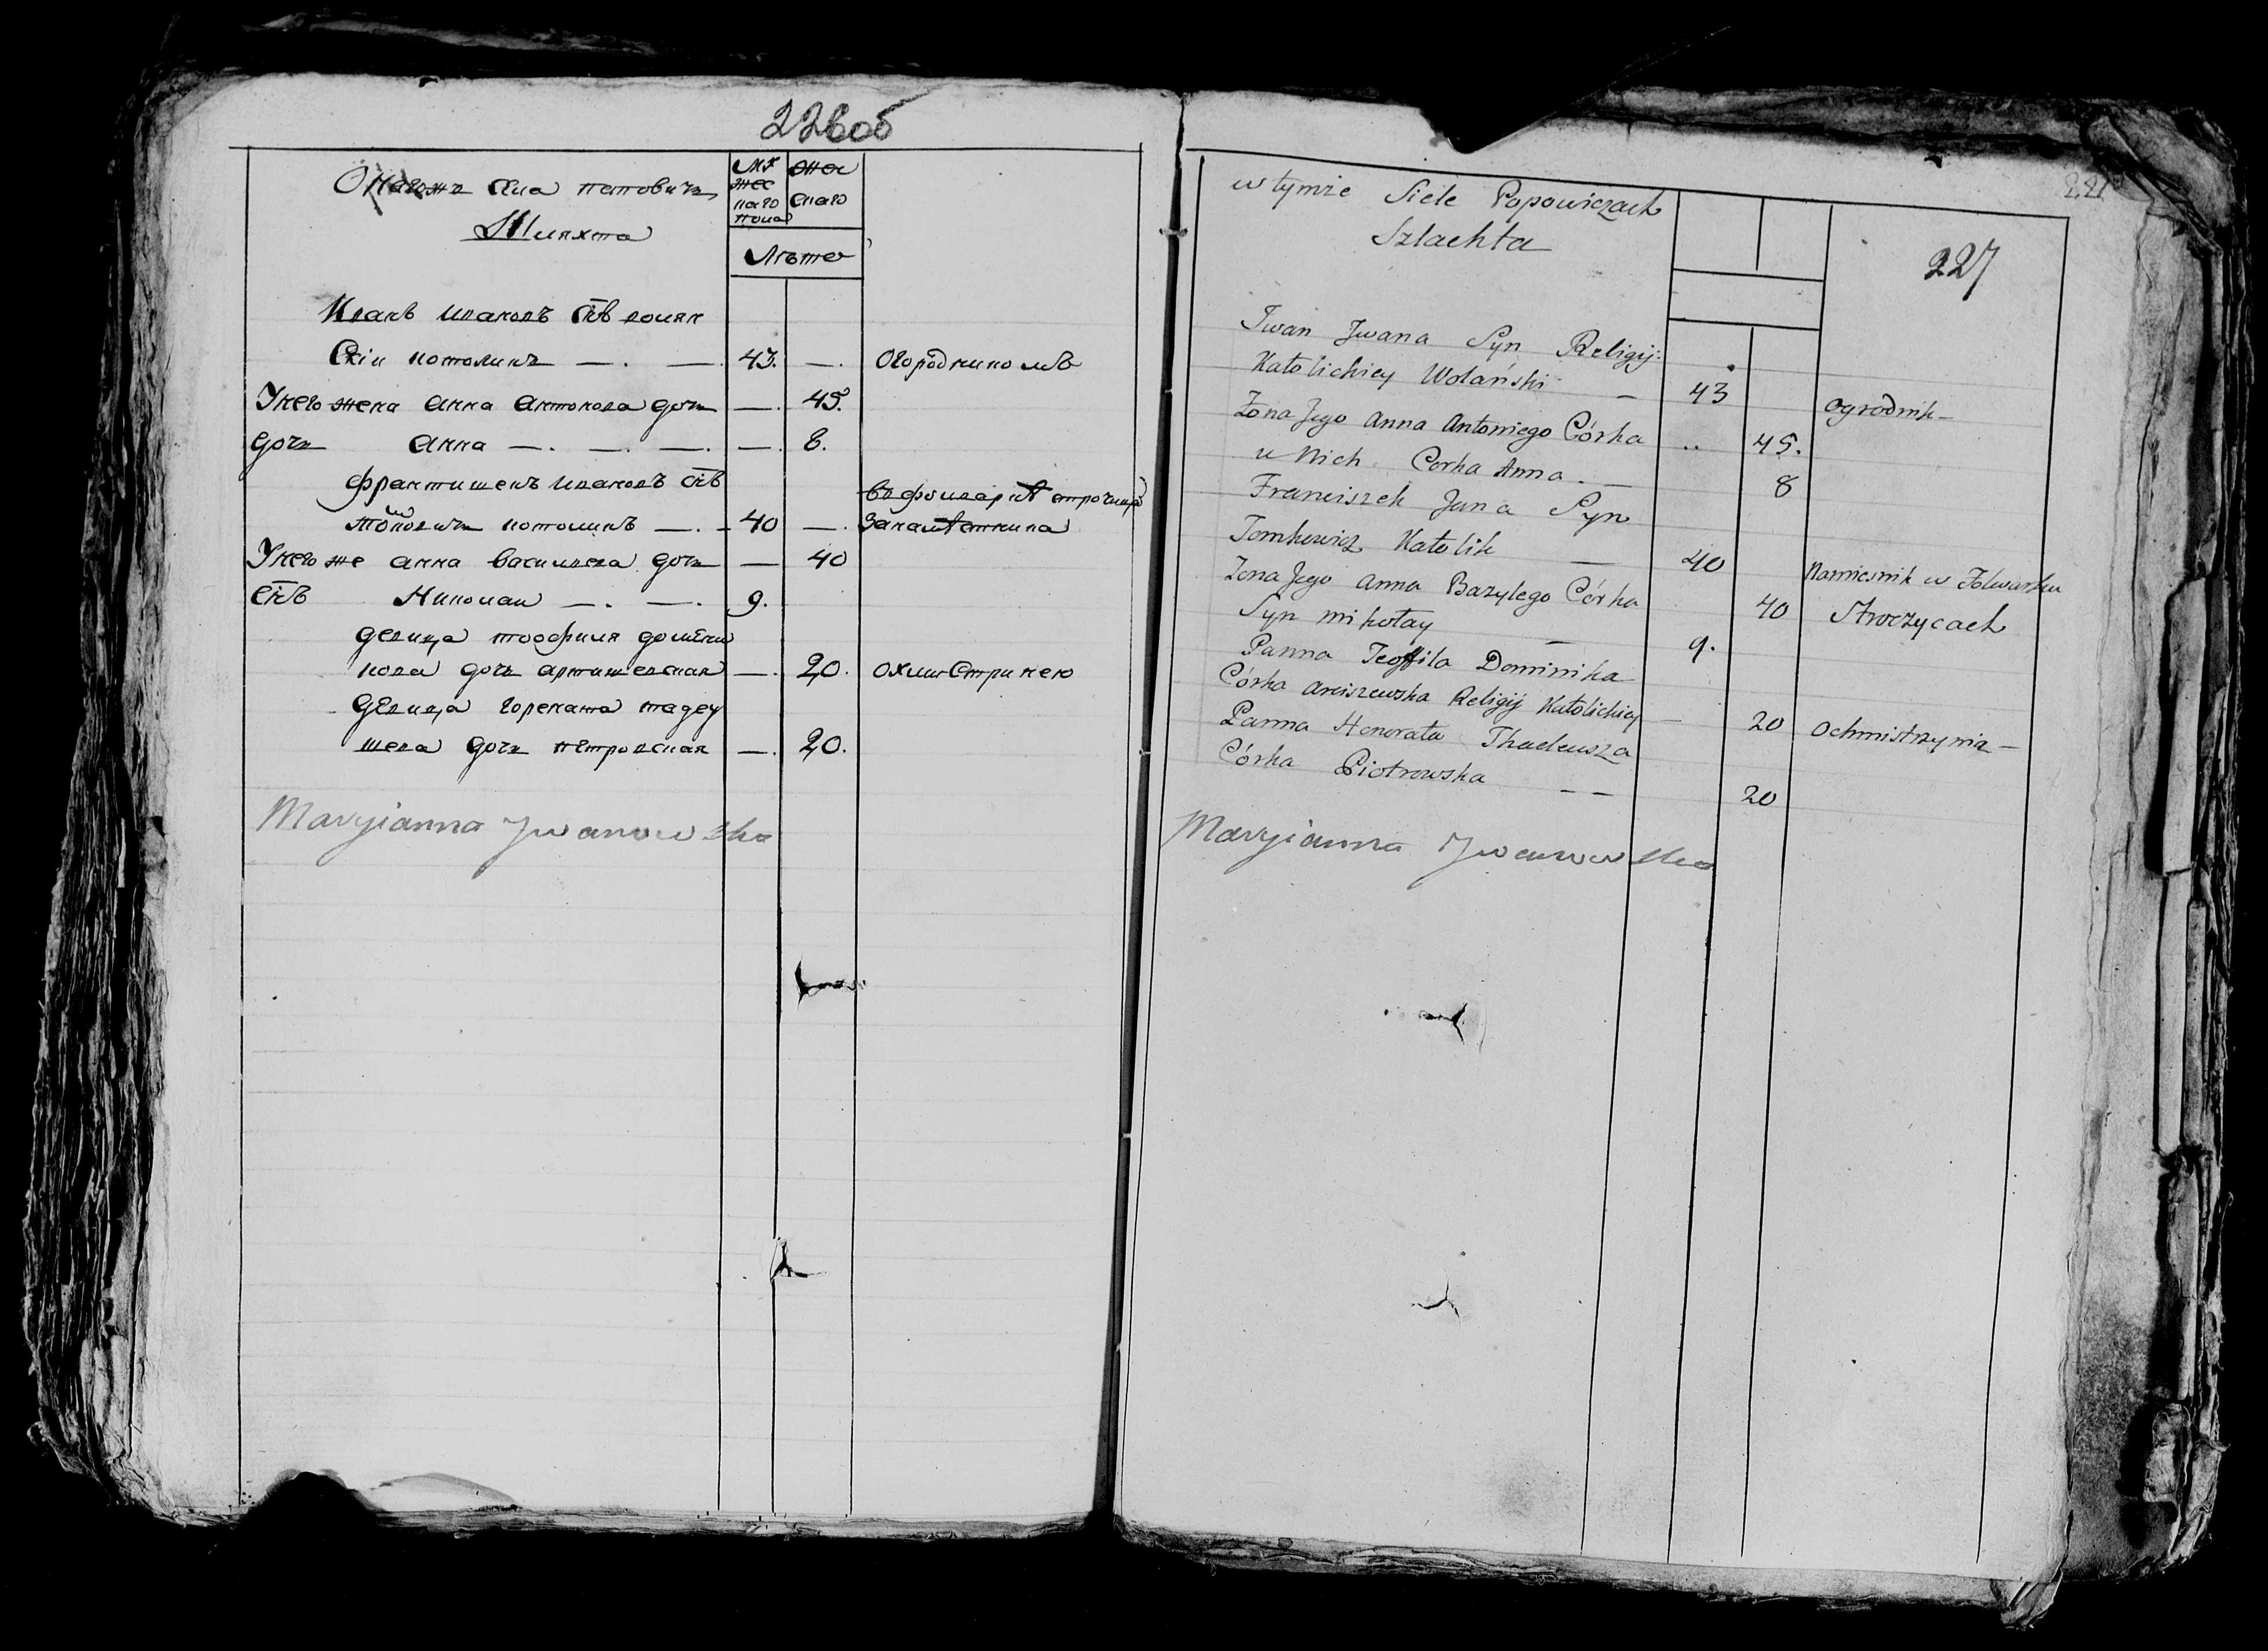 226об
села поповичъ
Шляхта
му
жес
каго
пола
жен
скаго
Лѣта
Иванъ Ивановъ сн҃ъ волян
скiи католикъ —. — 43. —. огородникомъ
У него жена анна антонова дочь — 45.
дочь анна —. —. —. —. 8.
францишекъ Ивановъ сн҃ъ
томковичъ католикъ —. - 40 —. въ фолваркѣ строчицѣ
занамѣсника
У него же анна василева дочь — 40
сн҃ъ Николаи —. —. 9.
девица теофиля домѣни
кова дочь арцишевская —. 20. охмистринею
девица гоноратa тадеу
шева дочь петровская —. 20.
Maryianna Jwanowska
227
w tymże Siele Popowiczach
Szlachta
227
Iwan Jwana Syn Religij:
Katolickiey Wolański — 43 ogrodnik —
Żona Jego Anna Antoniego Córka .. 45.
u Nich Corka Anna. — 8
Franciszek Jana Syn
Tomkowicz Katolik — 40 Namiesnik w Folwarku
Strozycach
Żona Jego Anna Bazylego Córka 40
Syn mikołay — 9.
Panna Teoffila Dominika
Córka Arciszewska Religij Katolickiey — 20 Ochmistrzynia —
Panna Honorata Thadeusza
Córka Piotrowska — — 20
Maryianna Jwanowska